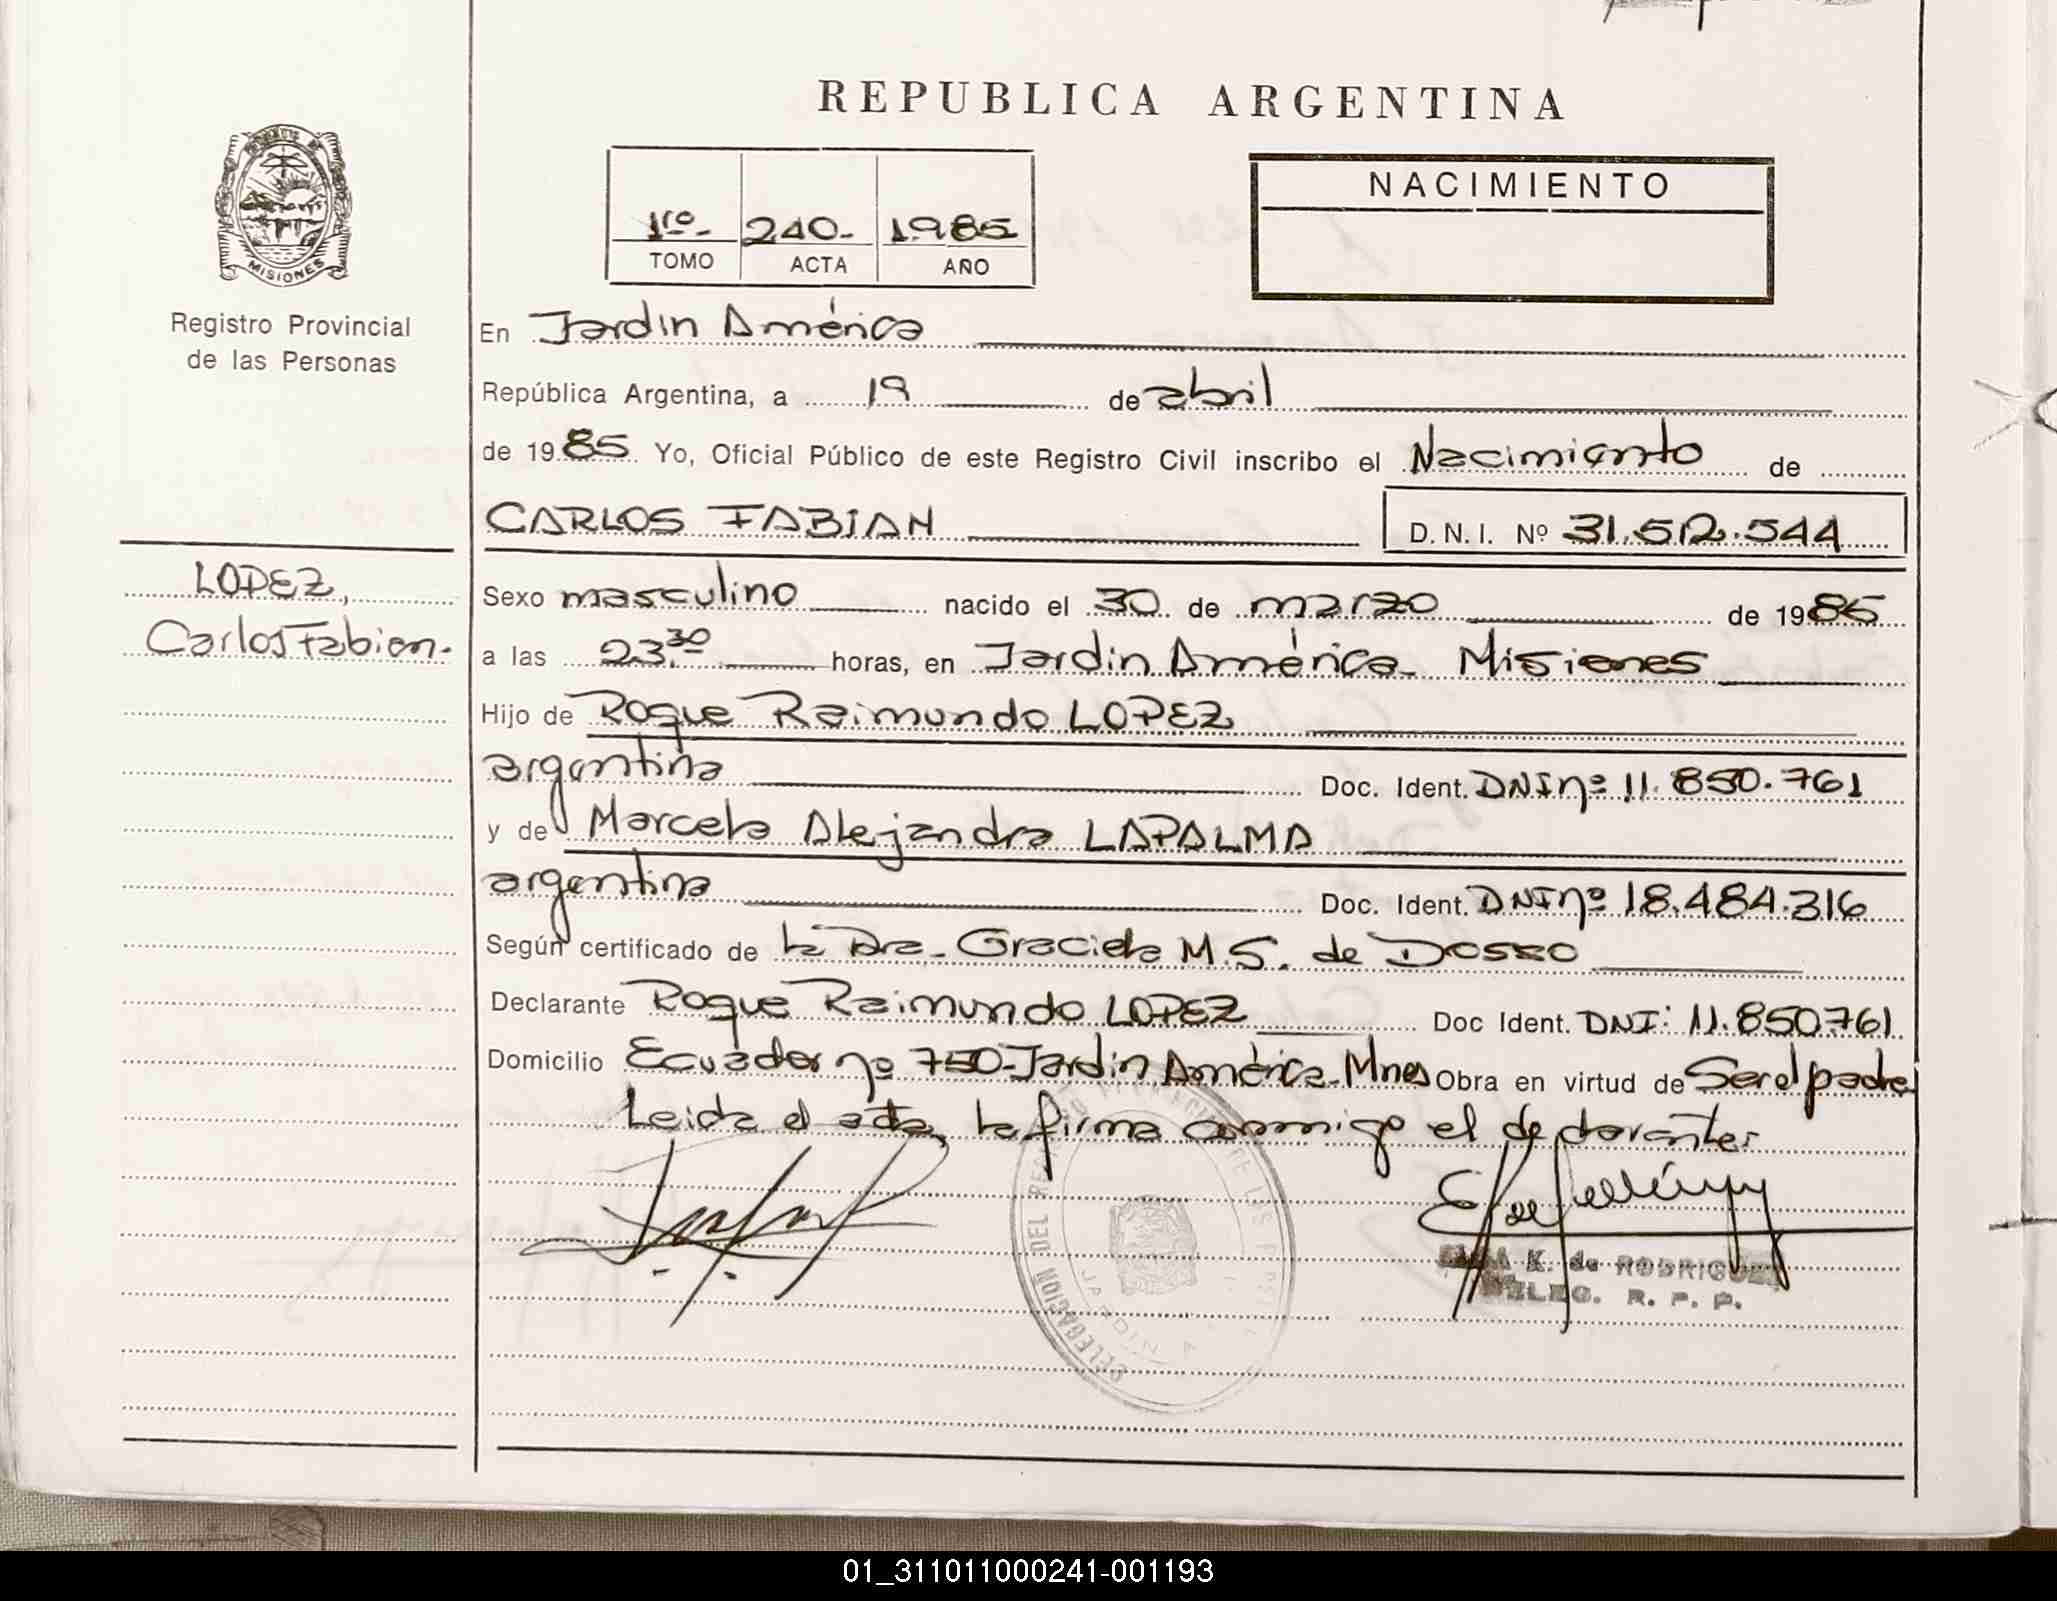 REPUBLICA ARGENTINA
MISIONES
Registro Provincial
de las Personas
1ro.- 240.- 1985
TOMO ACTA AÑO
NACIMIENTO
En Jardín América
República Argentina, a 19 de abril
de 1985. Yo, Oficial Público de este Registro Civil inscribo el Nacimiento de
CARLOS FABIAN D.N.I. Nº 31.512.544
LOPEZ,
Carlos Fabian.-
Sexo masculino nacido el 30 de marzo de 1985
a las 23.30 horas, en Jardín América - Misiones
Hijo de Roque Raimundo LOPEZ
argentina Doc. Ident. DNI nº 11.850.761
y de Marcela Alejandra LAPALMA
argentina Doc. Ident. DNI nº 18.484.316
Según certificado de la Dra. Graciela M.S. de DOSSO
Declarante Roque Raimundo LOPEZ Doc Ident. DNI: 11.850761
Domicilio Ecuador nº 750-Jardín América-Mnes Obra en virtud de Ser el padre
Leida el acta, la firma conmigo el declarante:
DELEGACION DEL
JARDIN A
K. de RODRIGUEZ
DELEG. R. P. P.
01_311011000241-001193